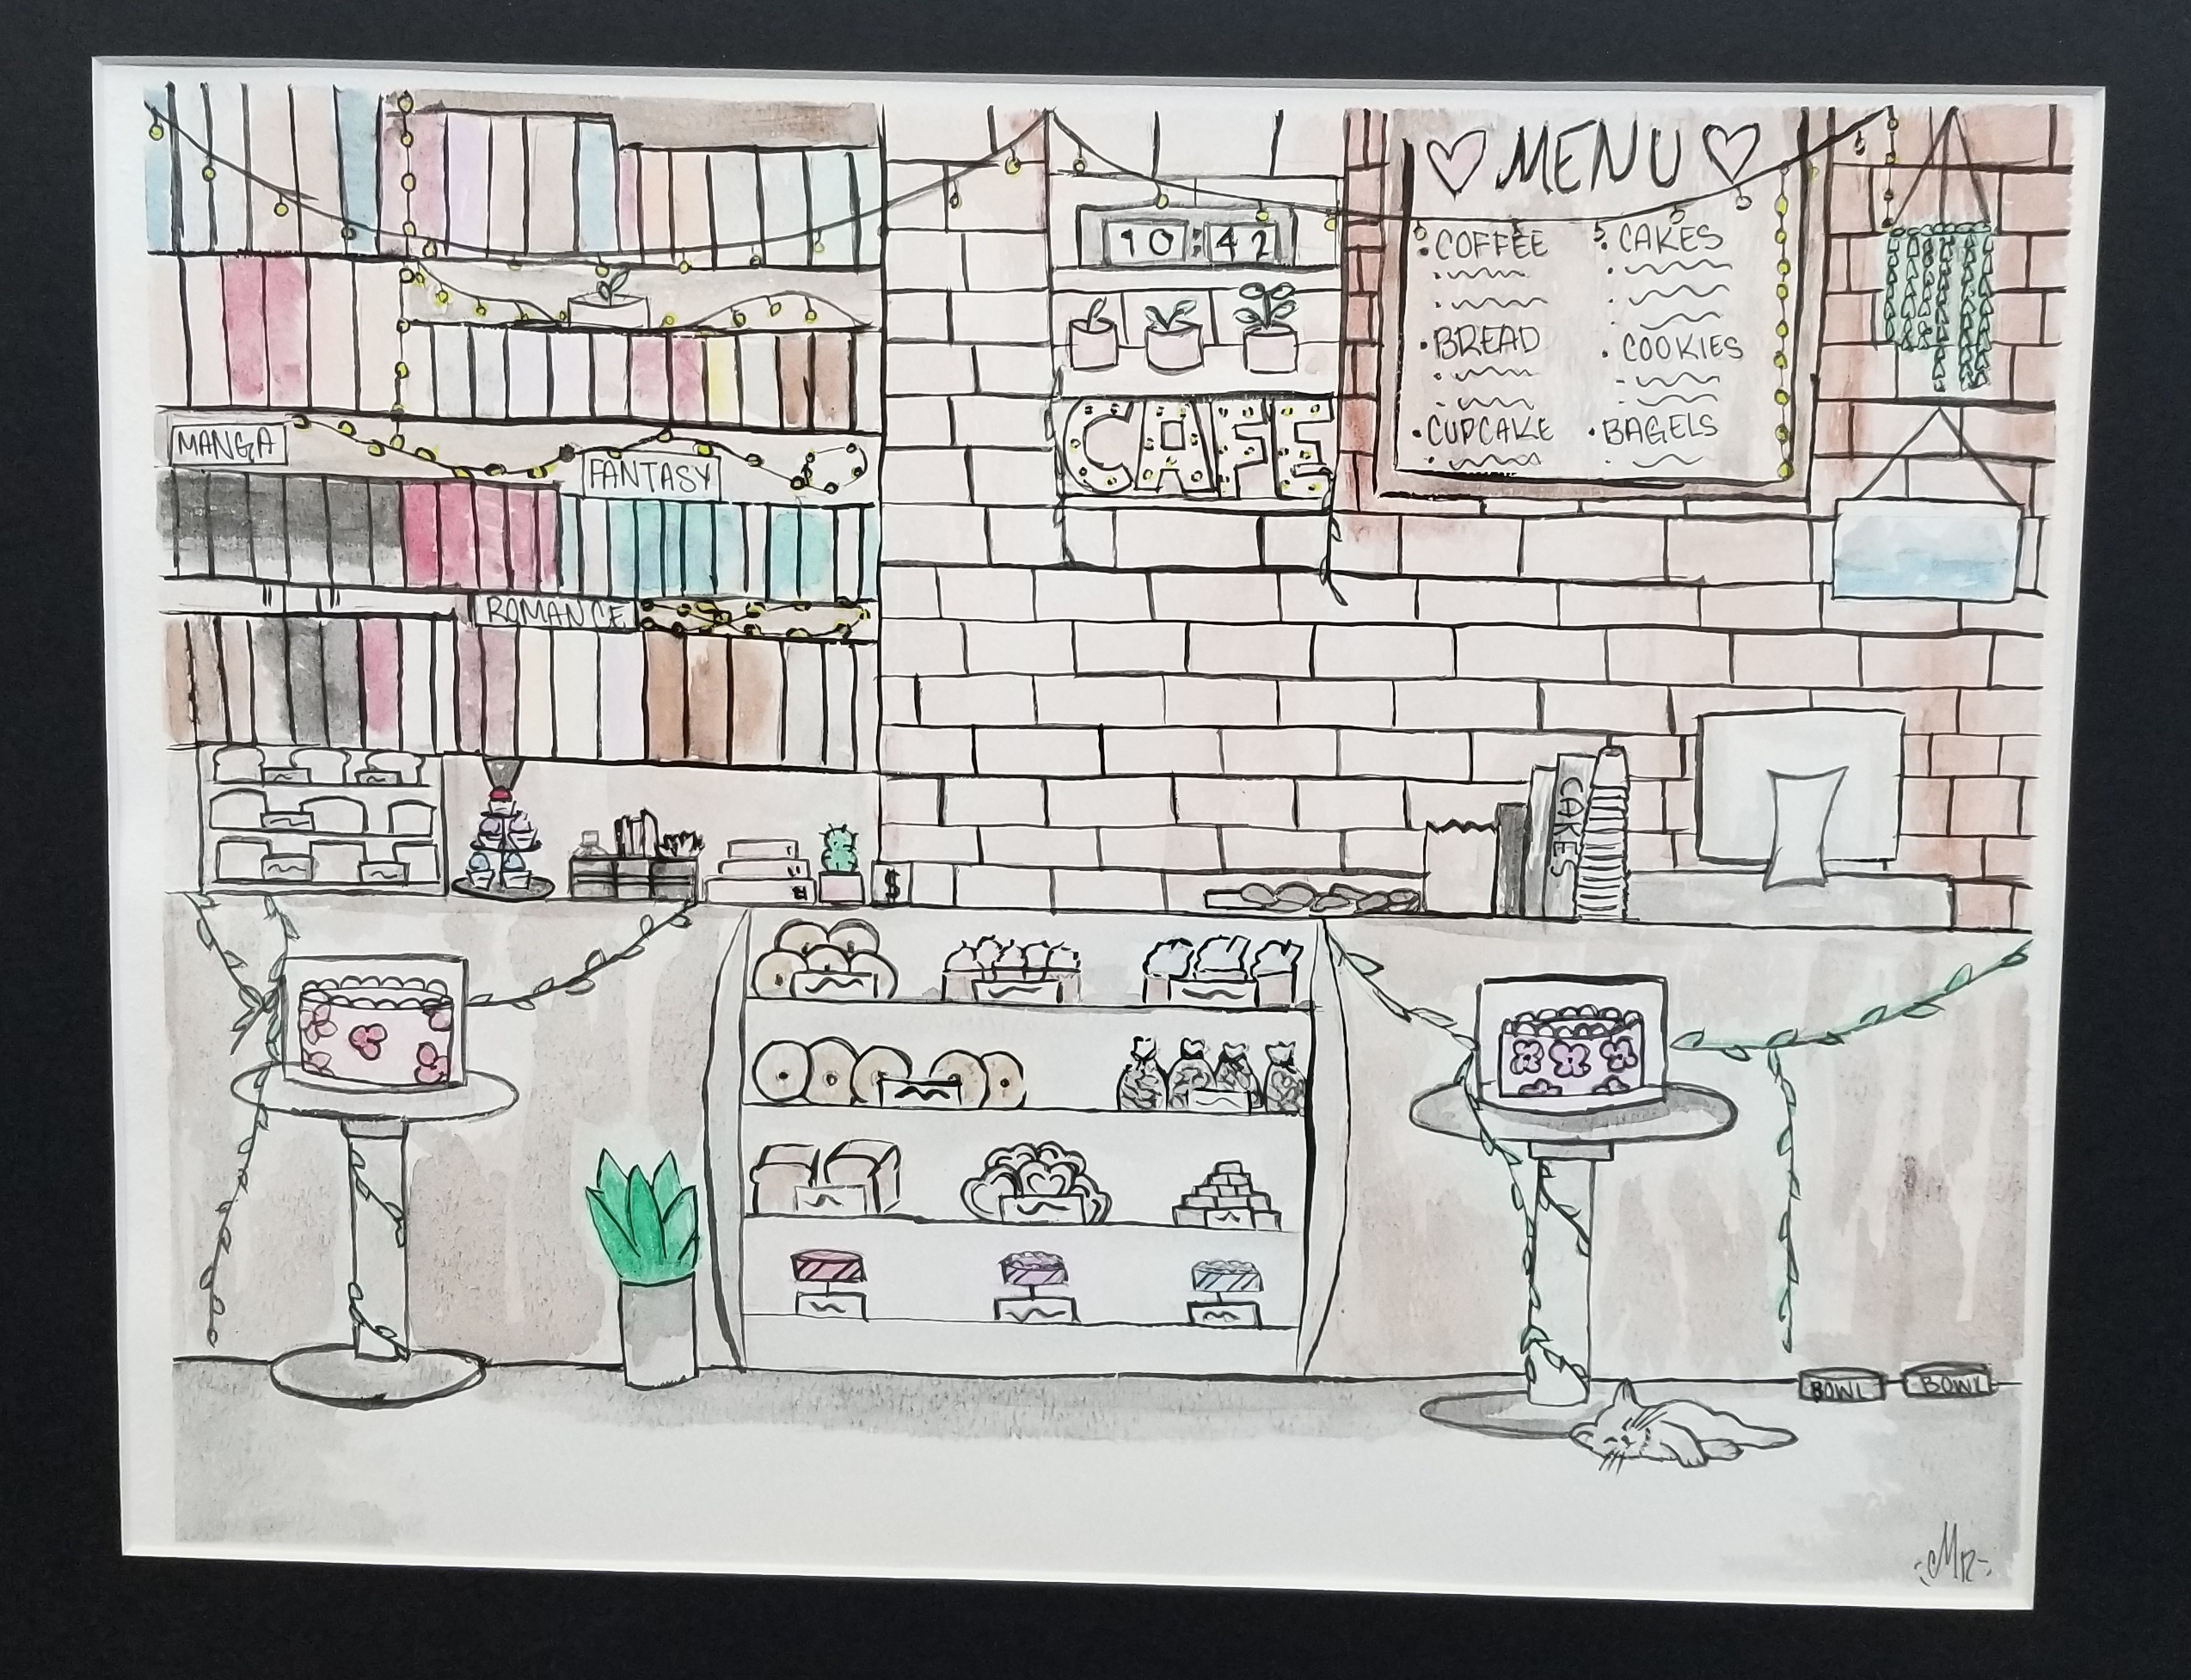 ♡ MENU ♡
10:42
• COFFEE
• CAKES
• BREAD
• COOKIES
• CUPCAKE
• BAGELS
CAFE
MANGA
FANTASY
ROMANCE
CAKES
$
BOWL
BOWL
MR